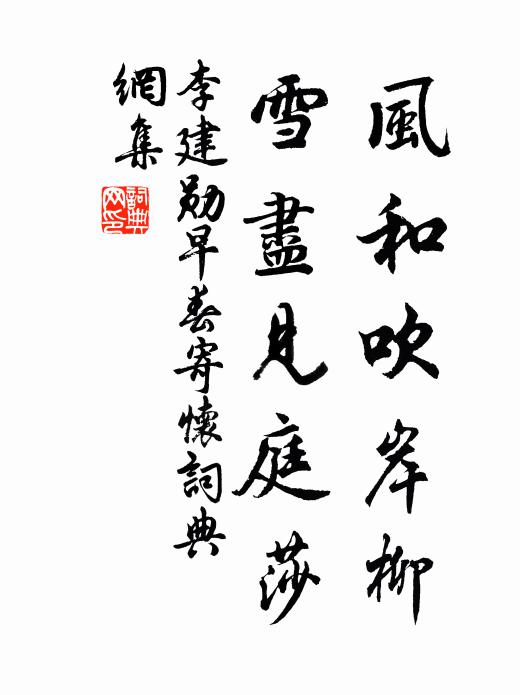 風和吹岸柳
雪盡見庭莎
李建勛早春寄懷詞典
網集
詞典
网印